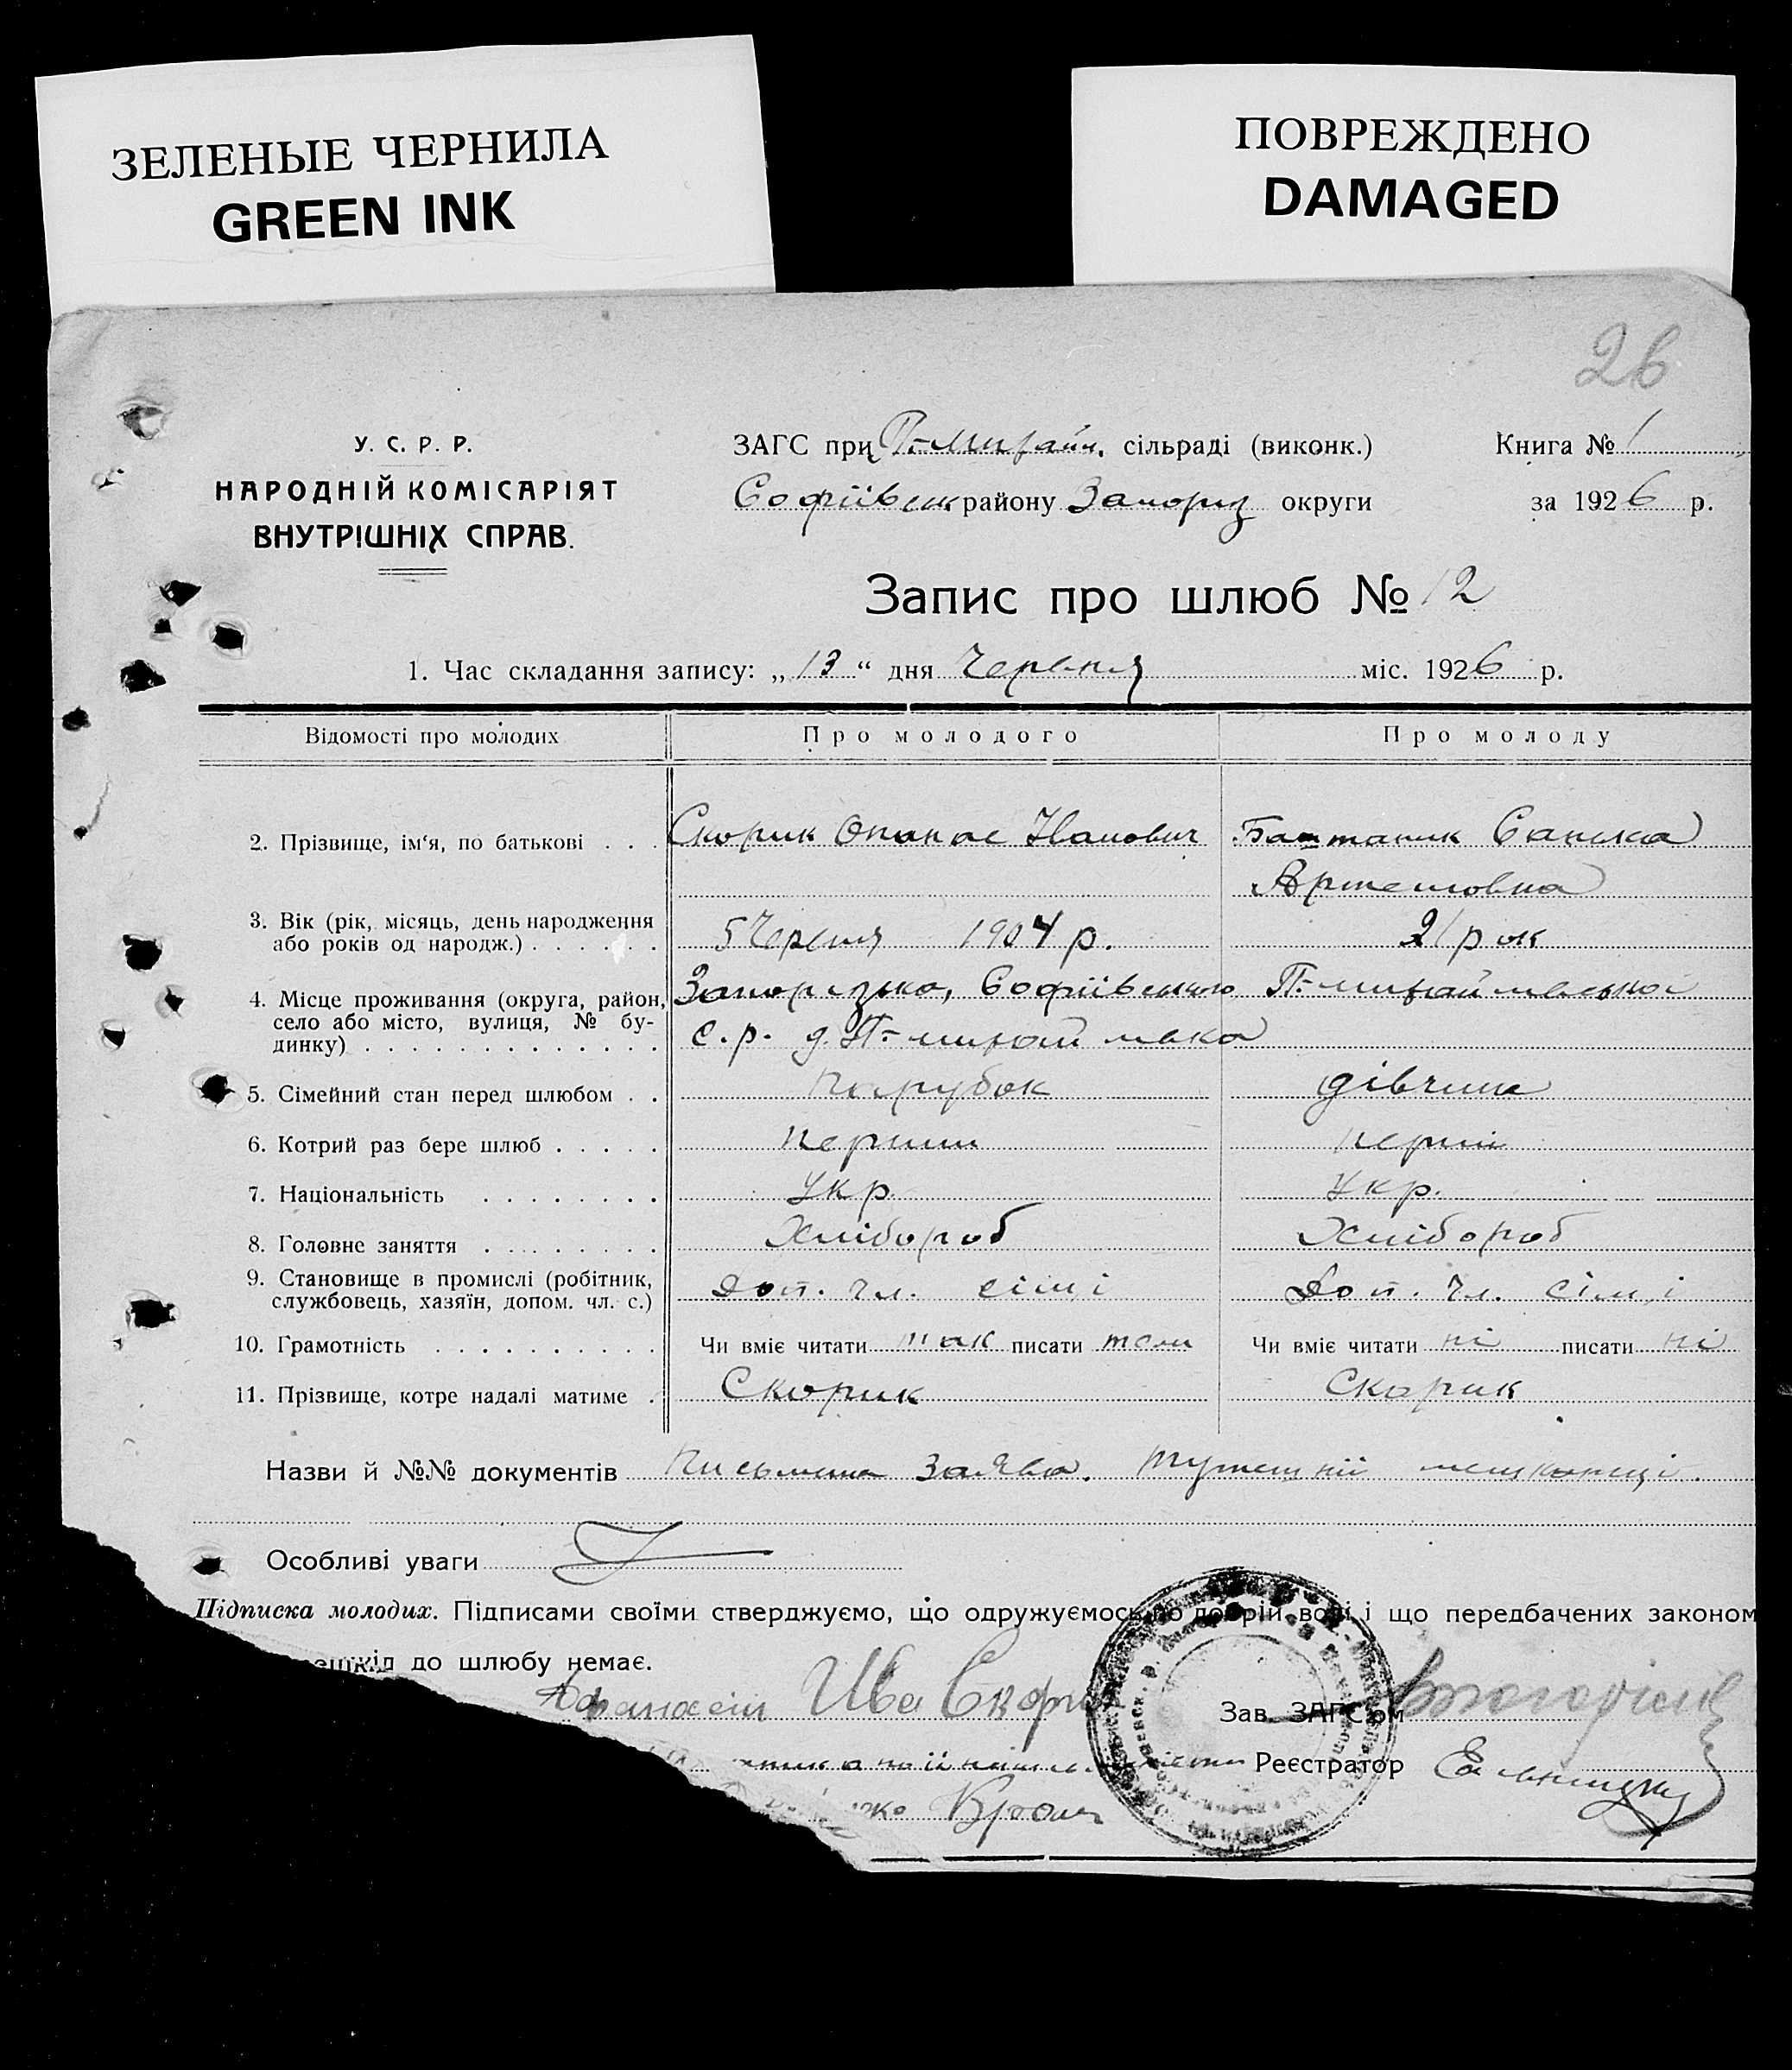 ЗЕЛЕНЫЕ ЧЕРНИЛА
GREEN INK
ПОВРЕЖДЕНО
DAMAGED
26
У. С. Р. Р.
НАРОДНІЙ КОМІСАРІЯТ
ВНУТРІШНІХ СПРАВ.
ЗАГС при сільраді (виконк.)
Софіївськ району Запоріз округи
Книга № 1
за 1926 р.
Запис про шлюб № 12
1. Час складання запису: „13“ дня Червня міс. 1926 р.
Відомості про молодих Про молодого Про молоду
2. Прізвище, ім‘я, по батькові . . . Скорик Опанас Іванович Баштаник Санька
Артемовна
3. Вік (рік, місяць, день народження
або років од народж.) . . . . . . 5 Червня 1904 р. 21 рок
4. Місце проживання (округа, район,
село або місто, вулиця, № бу-
динку) . . . . . . . . . . . . . Запорізька, Софіївського
с.р. д.
5. Сімейний стан перед шлюбом . . Парубок дівчина
6. Котрий раз бере шлюб . . . . . перший перший
7. Національність . . . . . . . . Укр. Укр.
8. Головне заняття . . . . . . . . Хлібороб Хлібороб
9. Становище в промислі (робітник,
службовець, хазяїн, допом. чл. с.) Доп. чл. сімі Доп. чл. сімі
10. Грамотність . . . . . . . . . . Чи вміє читати так писати так Чи вміє читати ні писати ні
11. Прізвище, котре надалі матиме . Скорик Скорик
Назви й №№ документів Письмена заява. Тутешнії мешканці.
Особливі уваги
Підписка молодих. Підписами своїми стверджуємо, що одружуємось по добрій волі і що передбачених законом
до шлюбу немає.
Афанасий Ива Скорик
Зав. ЗАГС'ом
Реєстратор